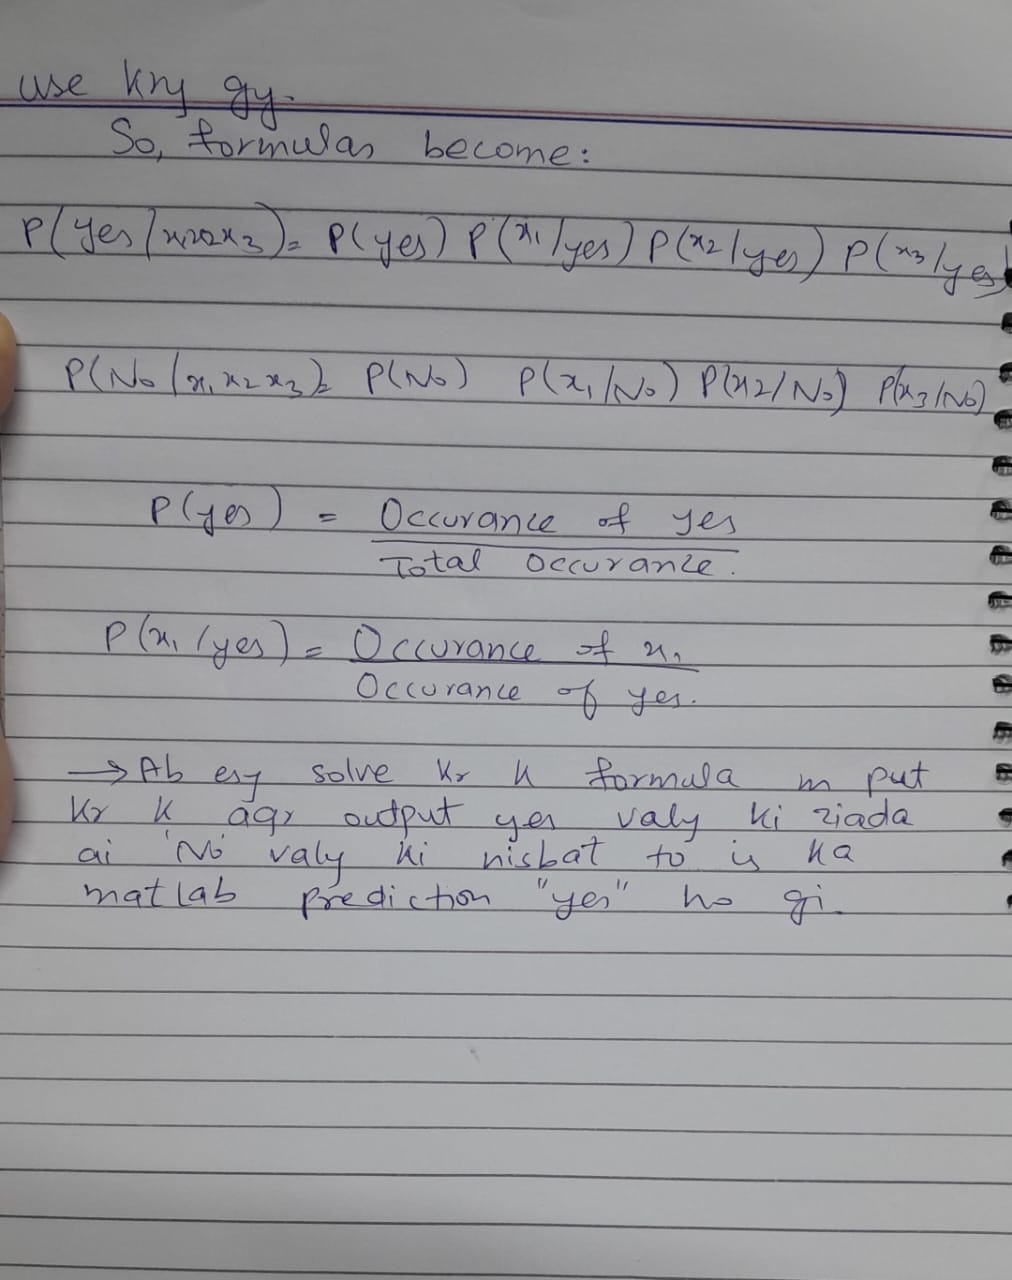 use kry gy.
So, formulas become:
P(yes/x1x2x3)= P(yes) P(x1/yes) P(x2/yes) P(x3/yes)
P(No/x1x2x3)= P(No) P(x1/No) P(x2/No) P(x3/No)
P(yes) = Occurance of yes
Total occurance.
P(x1/yes) = Occurance of x1
Occurance of yes.
→ Ab esy solve kr k formula m put
kr k agr output yes valy ki ziada
ai 'No' valy ki nisbat to is ka
matlab prediction "yes" ho gi.